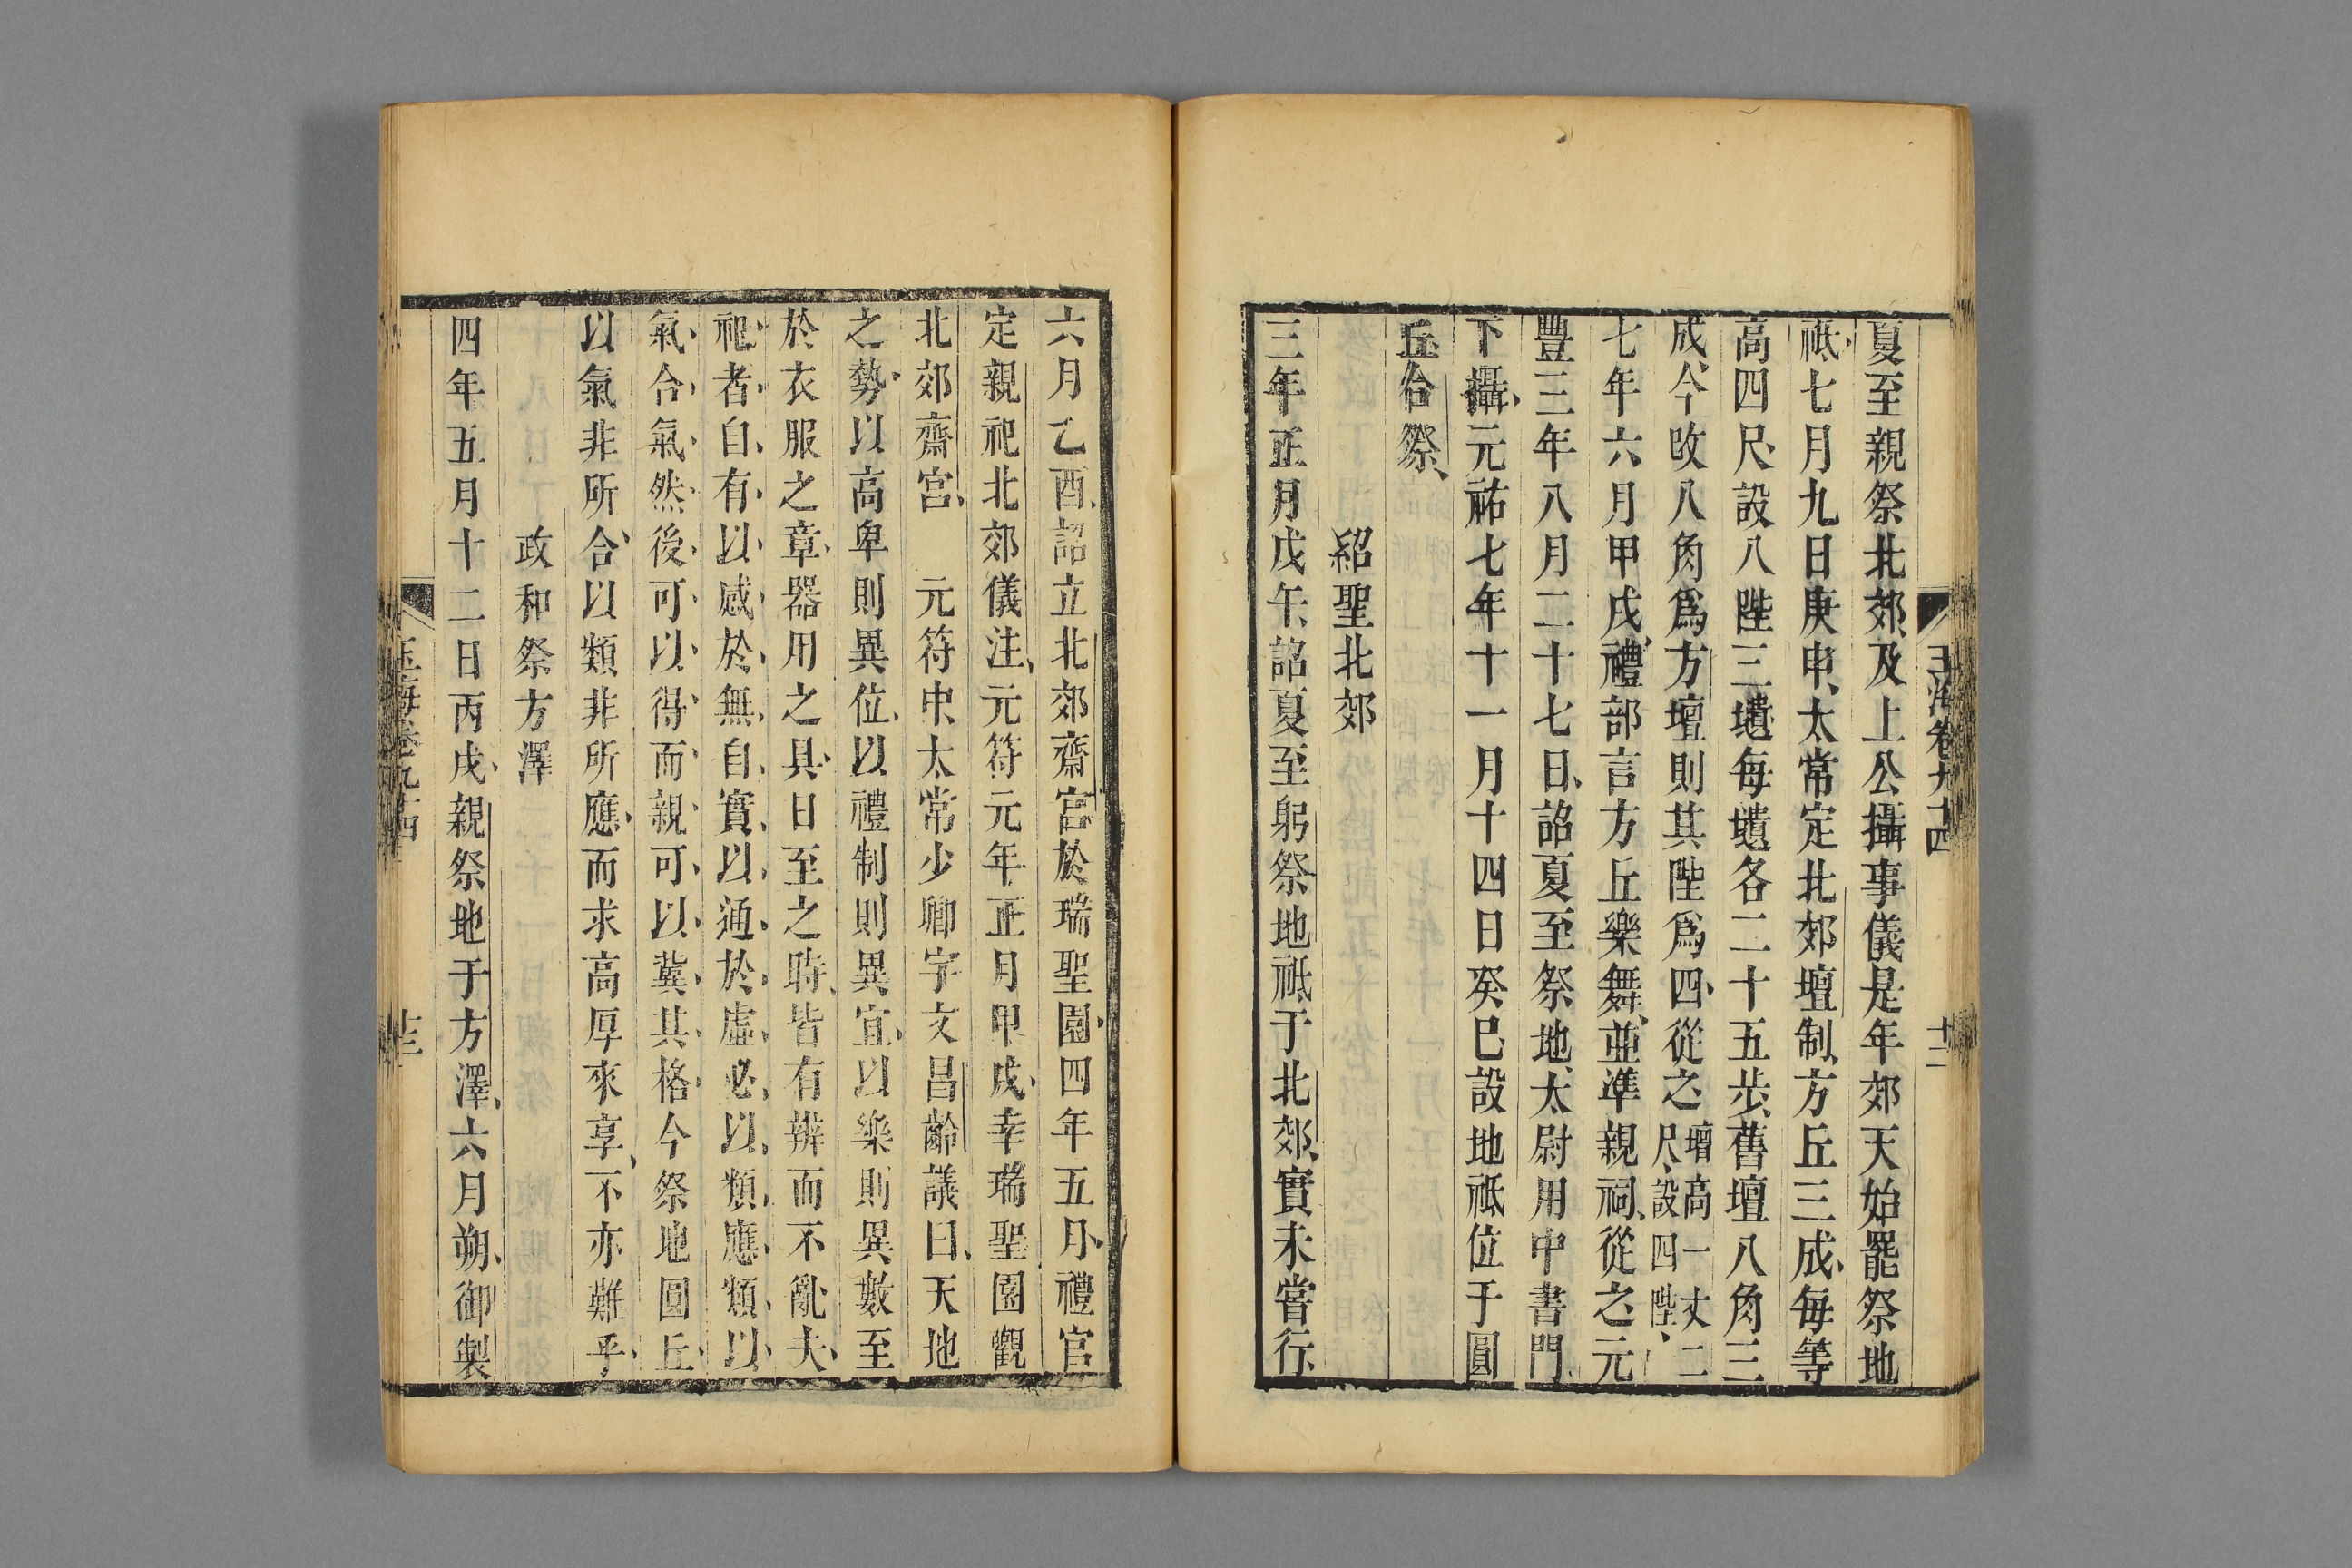 玉海卷九十四
十二
夏至親祭北郊及上公攝事儀是年郊天始罷祭地
祗七月九日庚申太常定北郊壇制方丘三成每等
高四尺設八陛三壝每壝各二十五步舊壇八角三
成今改八角爲方壇則其陛爲四從之壇高一丈二尺設四陛
七年六月甲戌禮部言方丘樂舞並準親祠從之元
豐三年八月二十七日詔夏至祭地太尉用中書門
下攝元祐七年十一月十四日癸巳設地祗位于圓
丘合祭
紹聖北郊
三年正月戊午詔夏至躬祭地祗于北郊實未嘗行
六月乙酉詔立北郊齋宮於瑞聖園四年五月禮官
定親祀北郊儀注元符元年正月甲戌幸瑞聖園觀
北郊齋宮　元符中太常少卿宇文昌齡議曰天地
之勢以高卑則異位以禮制則異宜以樂則異數至
於衣服之章器用之具日至之時皆有辨而不亂夫
祀者自有以感於無自實以通於虛必以類應類以
氣合氣然後可以得而親可以冀其格今祭地圓丘
以氣非所合以類非所應而求高厚來享不亦難乎
政和祭方澤
四年五月十二日丙戌親祭地于方澤六月朔御製
玉海卷九十四
十三